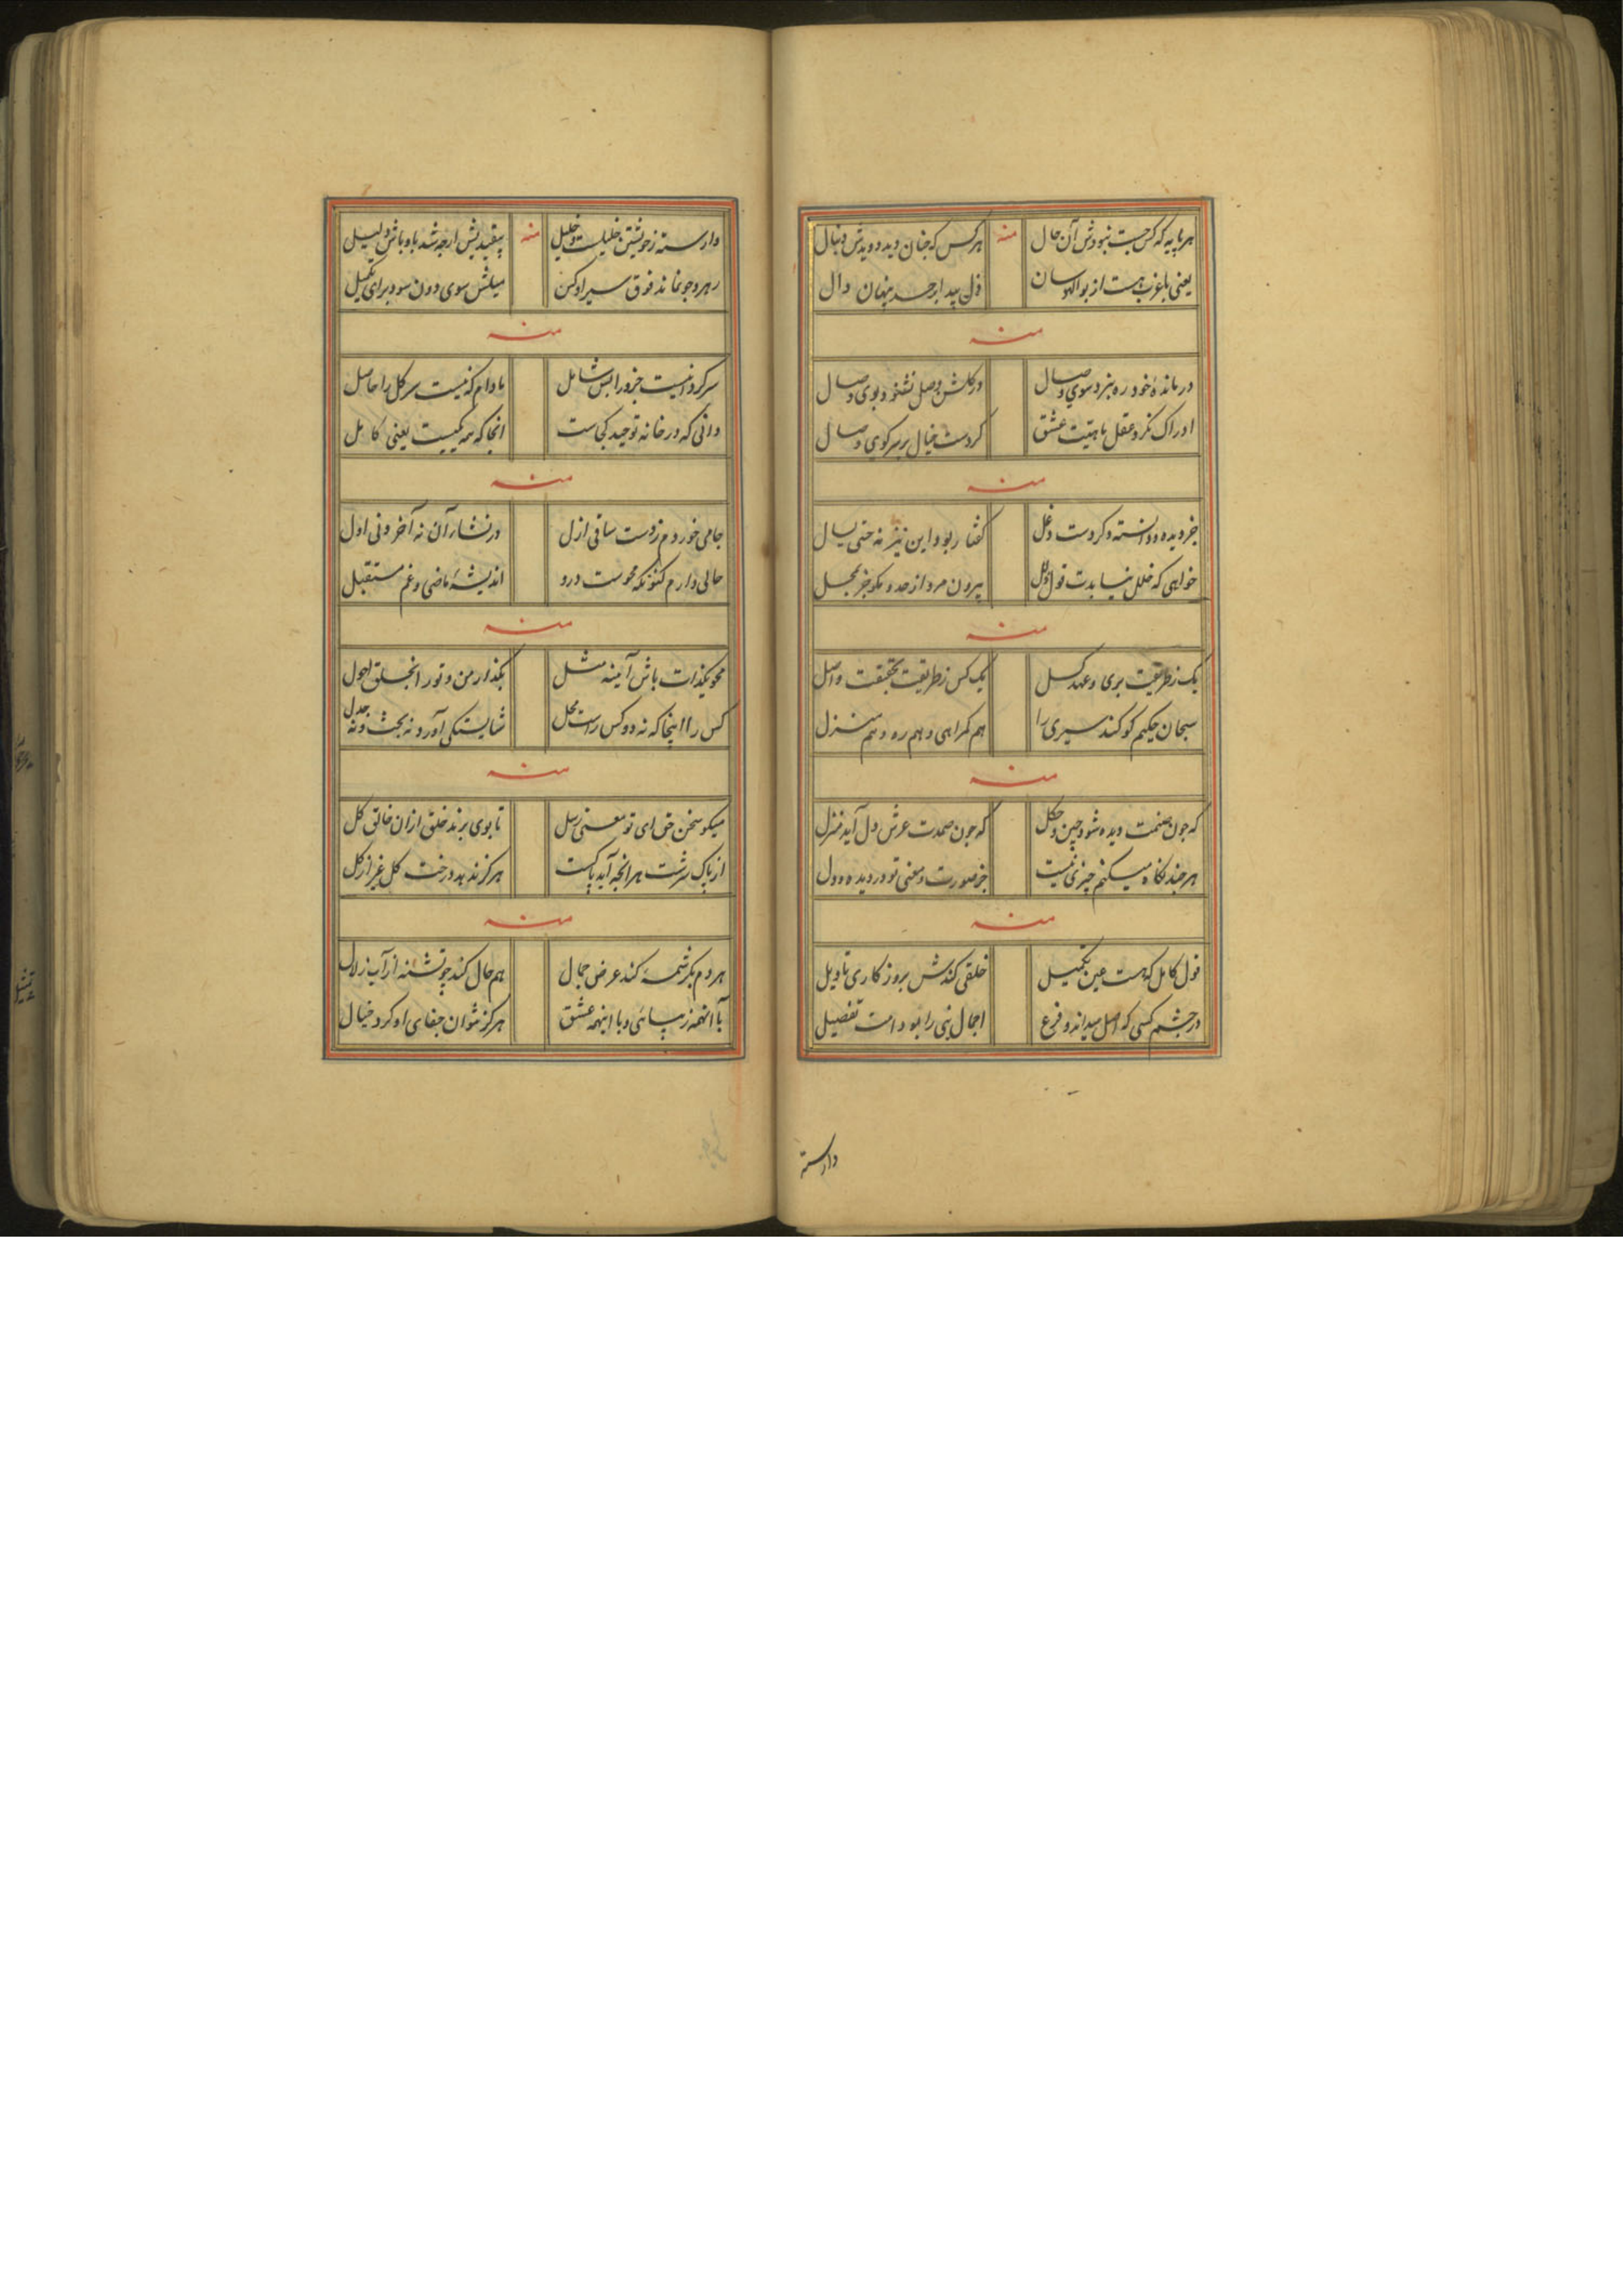 هر پایه که کس جست نبودش آن حال
منه
هر کس که چنان دید دویدش دنبال
یعنی باغرب هست از بوالهوسان
پنهان دال
منه
در مانده خود ره نبرد سوی وصال
در گلشن وصل نشنود بوی وصال
ادراک نکرد عقل ماهیت عشق
کردست خیال بر سر کوی وصال
منه
جز دیده و دانسته و کردست دغل
گفتار بود این نیز نه حتی
خواهی که خلل نیابدت قول و عمل
بیرون مرو از حد و مگو جز بمحل
منه
یک زطریقت بری و عهد کسل
یک کس زطریقت بحقیقت واصل
سبحان حکیم کو کند سیری را
هم گمراهی و هم ره و هم منزل
منه
که چون صنمت دیده شود چین و چکل
که چون صمدت عرش دل آید منزل
هر چند نگاه میکنم چیزی نیست
جز صورت و معنی تو در دیده و دل
منه
قول کامل که هست عین تکمیل
خلقی کندش بروزکاری تاویل
در چشم کسی که اصل میداند و فرع
اجمال نبی را بود امت تفصیل
وارسته
وارسته زخویشتن خلیلست و خلیل
منه
بیقید بش ارچه شد باو باش دلیل
رهرو چو نماند فوق سیر او کن
میلش سوی دون سود برای تکمیل
منه
سر کردانیست جزو را بس شامل
مادام که نیست سر کل را حاصل
دانی که در خانه توحید کجاست
انجا که همه کیست یعنی کامل
منه
جامی خوردم زدست ساقی ازل
در نشئار آن نه آخر و نی اول
حالی دارم کنونکه محوست درو
اندیشه ماضی و غم مستقبل
منه
محو یکذات باش آیینه مثل
بگذار من و تو را
کس را اینجا که نه دو کس راست محل
شایستگی آورد نه بحث و نه جدل
منه
میکو سخن حق ای تو معنی رسل
تا بوی برند خلق ازان خالق کل
از پاک سرشت هر انچه آید پاکست
هرگز ندهد درخت گل غیر از گل
منه
هر دم بکرشمه کند عرض جمال
هم حال کند چو تشنه از آب زلال
با انهمه زیبائی و با اینهمه عشق
هرگز نتوان جفای او کرد خیال